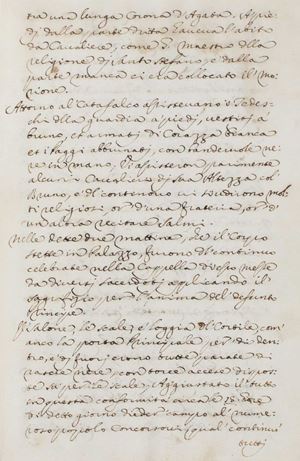 tra una lunga Corona d'Agata. A piedi
di dalla parte dritta l'aueua l'abito
da Caualiere, come G. Maestro della
religione di Santo Stefano, e dalla
parte manca ci era collocato il Mo-
rione.
Attorno al Catafalco assisteuano i Tedes-
chi della guardia a piedi, uestiti a
bruno, et armati di Corazza bianca
et i Paggi abbrunati, con bandeuole ne-
re in mano. Vi assisteron parimente
alcuni Caualieri di Sua Altezza col
Bruno, e del contenuo ui si udirono mol-
ti religiosi, or d'una frateria, or di
un'altra recitare Salmi.
Nelle dete due mattine, che il Corpo
stette in Palazzo, furono di continuo
celebrate nella Cappella di esso messe
da diuersi sacerdoti applicando il
suffragio per l'anima del defunto
Principe.
Il Salone, le scale, e loggia del Cortile, co-
m'anco la porta Principale per di den-
tro, e di fuori erono tutte parate di
rascie nere, con torce accese dispos-
te sù per le scale; Aggiustato il tutto
in questa conformità circa le 18 ore
di detto giorno dieder campo al nume-
roso popolo concorsoui, qual continuò
tutti